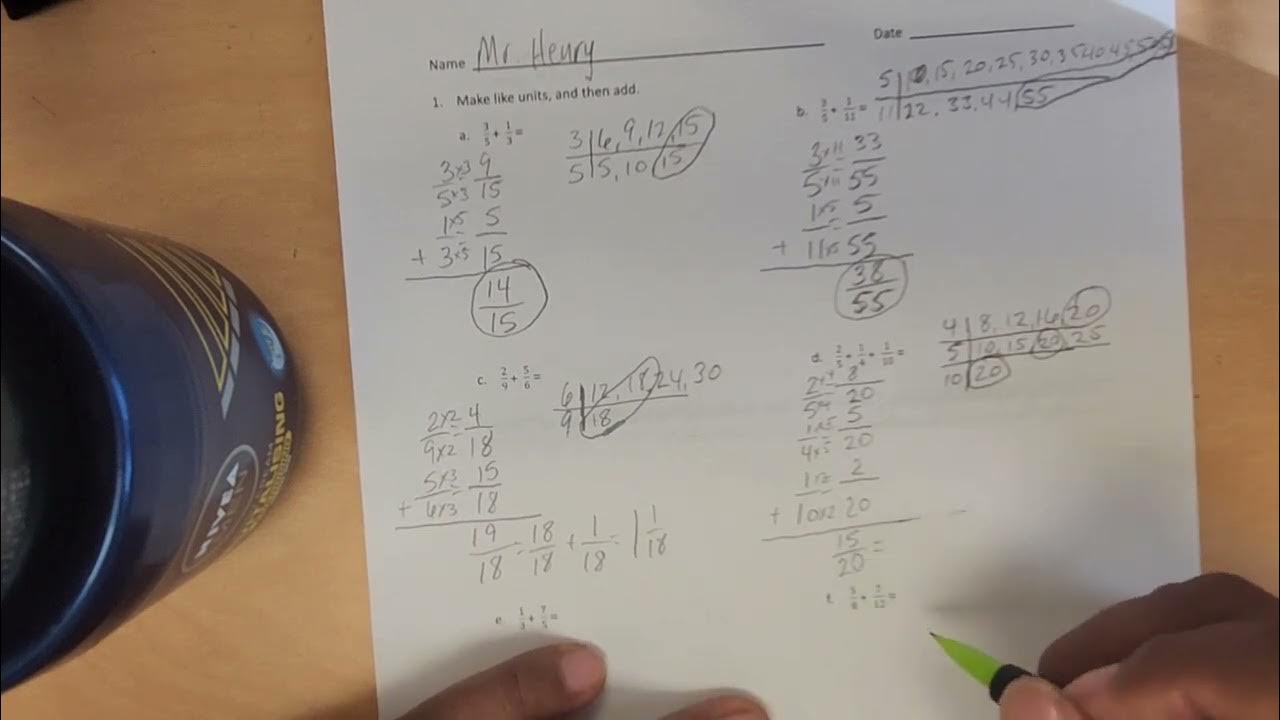 Name Mr. Henry
Date
1. Make like units, and then add.
a. 3/5 + 1/3 =
3 | 6, 9, 12, 15
5 | 5, 10 15
3 x3 = 9
5 x3 15
1 x5 = 5
+ 3 x5 15
14
15
b. 3/5 + 1/11 =
5 | 10, 15, 20, 25, 30, 35 40 45 50 55
11 | 22, 33, 44 55
3 x11 = 33
5 x11 55
1 x5 = 5
+ 11 x5 55
38
55
c. 2/9 + 5/6 =
6 | 12, 18, 24, 30
9 | 18
2 x2 = 4
9 x2 18
5 x3 = 15
+ 6 x3 18
19/18 = 18/18 + 1/18 = 1 1/18
d. 2/5 + 1/4 + 1/10 =
4 | 8, 12, 16, 20
5 | 10, 15, 20, 25
10 | 20
2 x4 = 8
5 x4 20
1 x5 = 5
4 x5 20
1 x2 = 2
+ 10 x2 20
15/20 =
e. 1/3 + 7/5 =
f.
NIVEA
MEN